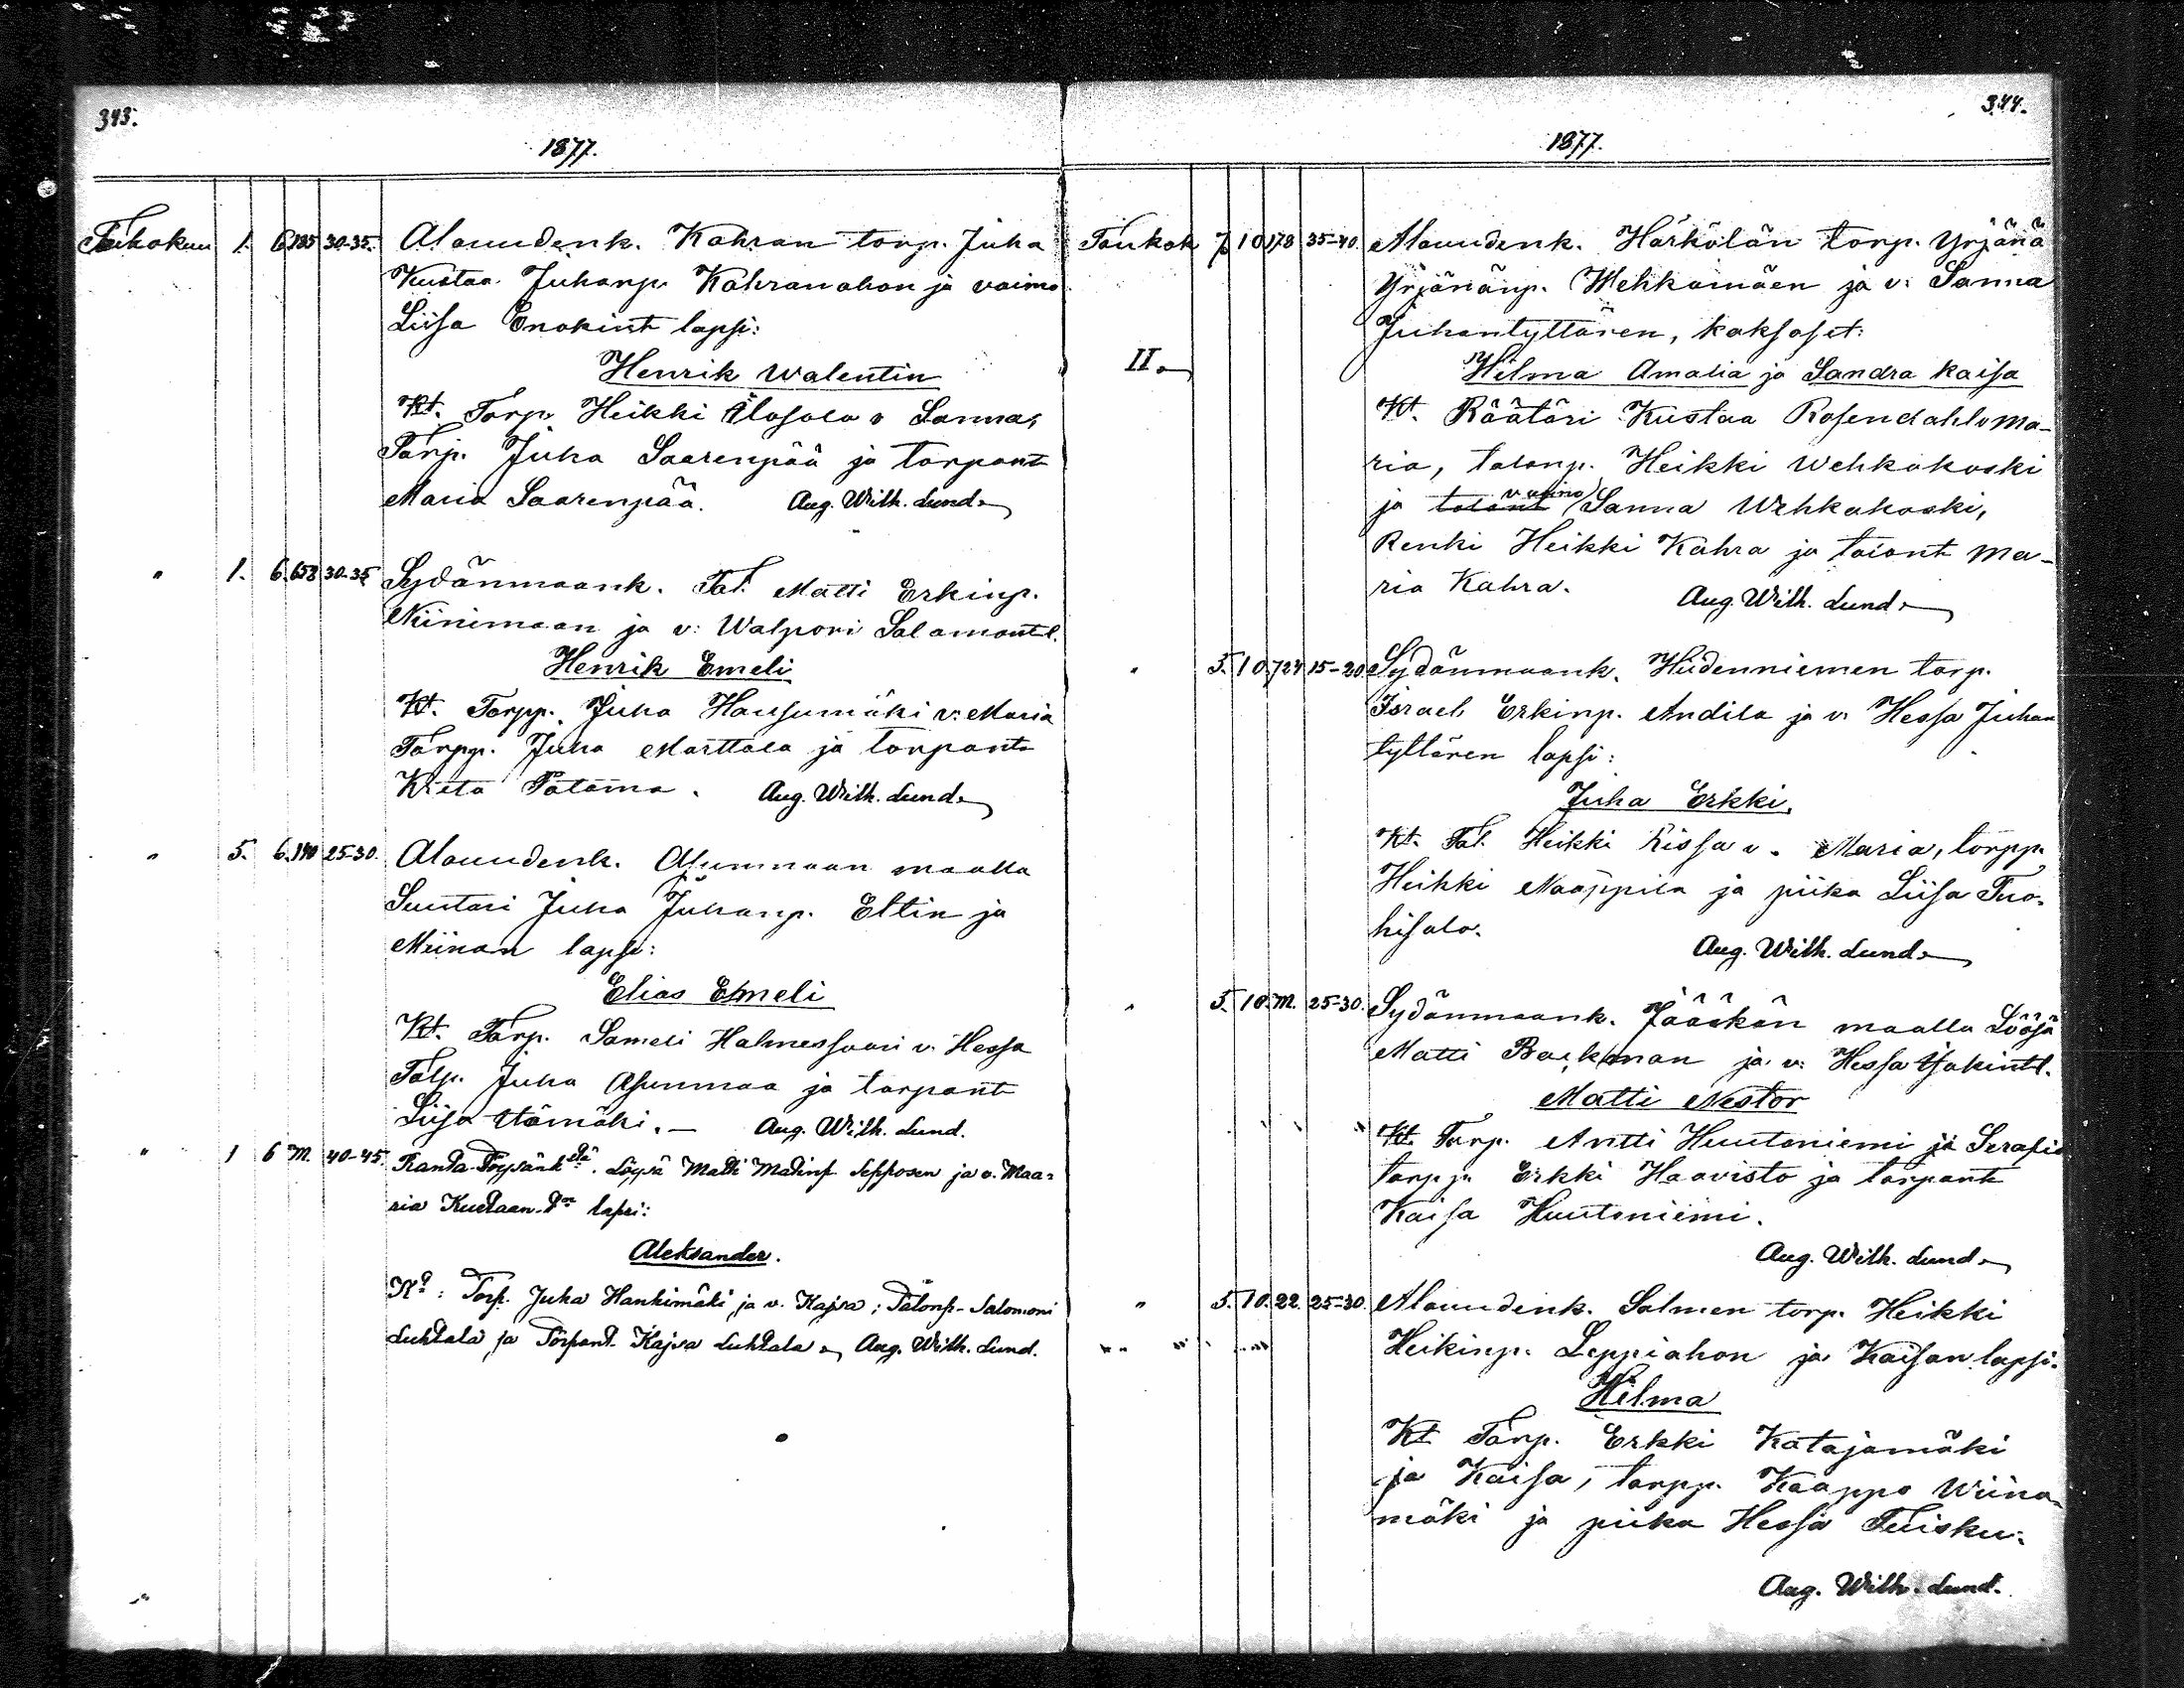 343.
1877.
Toukokuu 1. 6. 185 30-35. Alavudenk. Kahran torp. Juha
Kustaa Juhanp. Kahranahon ja vaimo
Liisa Enokint lapsi:
Henrik Walentin
Kt. Torp. Heikki Alasala v Sanna,
Torp. Juha Saarenpää ja torpant
Maria Saarenpää. Aug. Wilh. Lund.
" 1. 6. 658 30-35 Sydänmaank. Tal. Matti Erkinp.
Niinimaan ja v: Walpori Salamontt.
Henrik Emeli
Kt. Torpp. Juha Hausumäki v: Maria
Torpp. Juha Marttala ja torpant
Kreta Patama. Aug. Wilh. Lund.
" 5. 6. 140 25-30. Alavudenk. Asunmaan maalla
Suutari Juha Juhanp. Eltin ja
Miinan lapsi:
Elias Emeli
Kt. Torp. Sameli Halmessaari v. Hessa
Talp. Juha Asunmaa ja torpant
Liisa Utämäki. — Aug. Wilh. Lund.
" 1 6 M. 40-45. Ranta-Töysänk. Löysä Matti Matinp Sepposen ja v. Maa-
ria Kustaan. lapsi:
Aleksander.
Kt: Torp. Juha Hankimäki ja v. Kajsa; Talonp- Salomoni
Luhtala ja Torpant Kajsa Luhtala. Aug. Wilh. Lund.
"
344.
1877.
Toukok 7. 10 178 35-40. Alavudenk. Härkölän torp. Yrjänä
Yrjänänp. Wehkamäen ja v: Sanna
Juhantyttären, kaksoset:
II. Hilma Amalia ja Sandra Kaisa
Kt. Räätäri Kustaa Rosendahl v Ma-
ria, talonp. Heikki Wehkakoski
ja talont vaimo Sanna Wehkakoski,
Renki Heikki Kahra ja talont Ma-
ria Kahra. Aug. Wilh. Lund.
" 5. 10. 724 15-20 Sydänmaank. Hiidenniemen torp.
Israel Erkinp. Andila ja v. Hessa Juhan
tyttären lapsi:
Juha Erkki.
Kt. Tal. Heikki Rissa v. Maria, torpp.
Heikki Naappila ja piika Liisa Tuo-
hisalo. Aug. Wilh. Lund.
" 5. 10. M. 25-30. Sydänmaank. Jääskän maalla Löösä
Matti Backman ja v: Hessa Isakintt.
Matti Nestor
Kt. Torp. Antti Huutoniemi ja Serafia
torpp. Erkki Haavisto ja torpant
Kaisa Huutoniemi.
Aug. Wilh. Lund.
" 5. 10. 22. 25-30 Alavudenk. Salmen torp. Heikki
Heikinp. Leppiahon ja Kaisan lapsi.
Hilma
Kt Torp. Erkki Katajamäki
ja Kaisa, torpp. Kaappo Wiina-
mäki ja piika Hessa Tuisku.
Aug. Wilh. Lund.